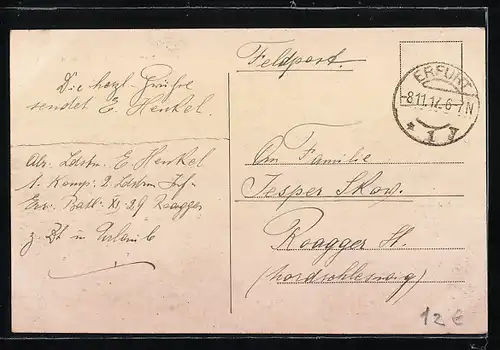 Feldpost.
ERFURT
-8.11.17.6-7N
* 1 y
Die herzl. Grüße
sendet E. Henkel.
Abs. Ldstm. E Henkel
1. Komp. 2. Ldstm Inf-
Ers. Batl. XI 29 Roagger
z. Zt in Urlaub
An Familie
Jesper Skow.
Roagger H.
(Nordschleswig)
12 €